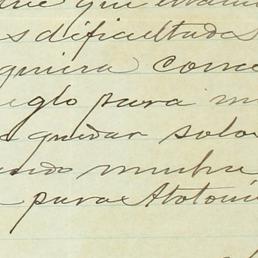 que
s dificultades
quiera conce
eglo para m
quedar solo
ando muha
para Atotoni